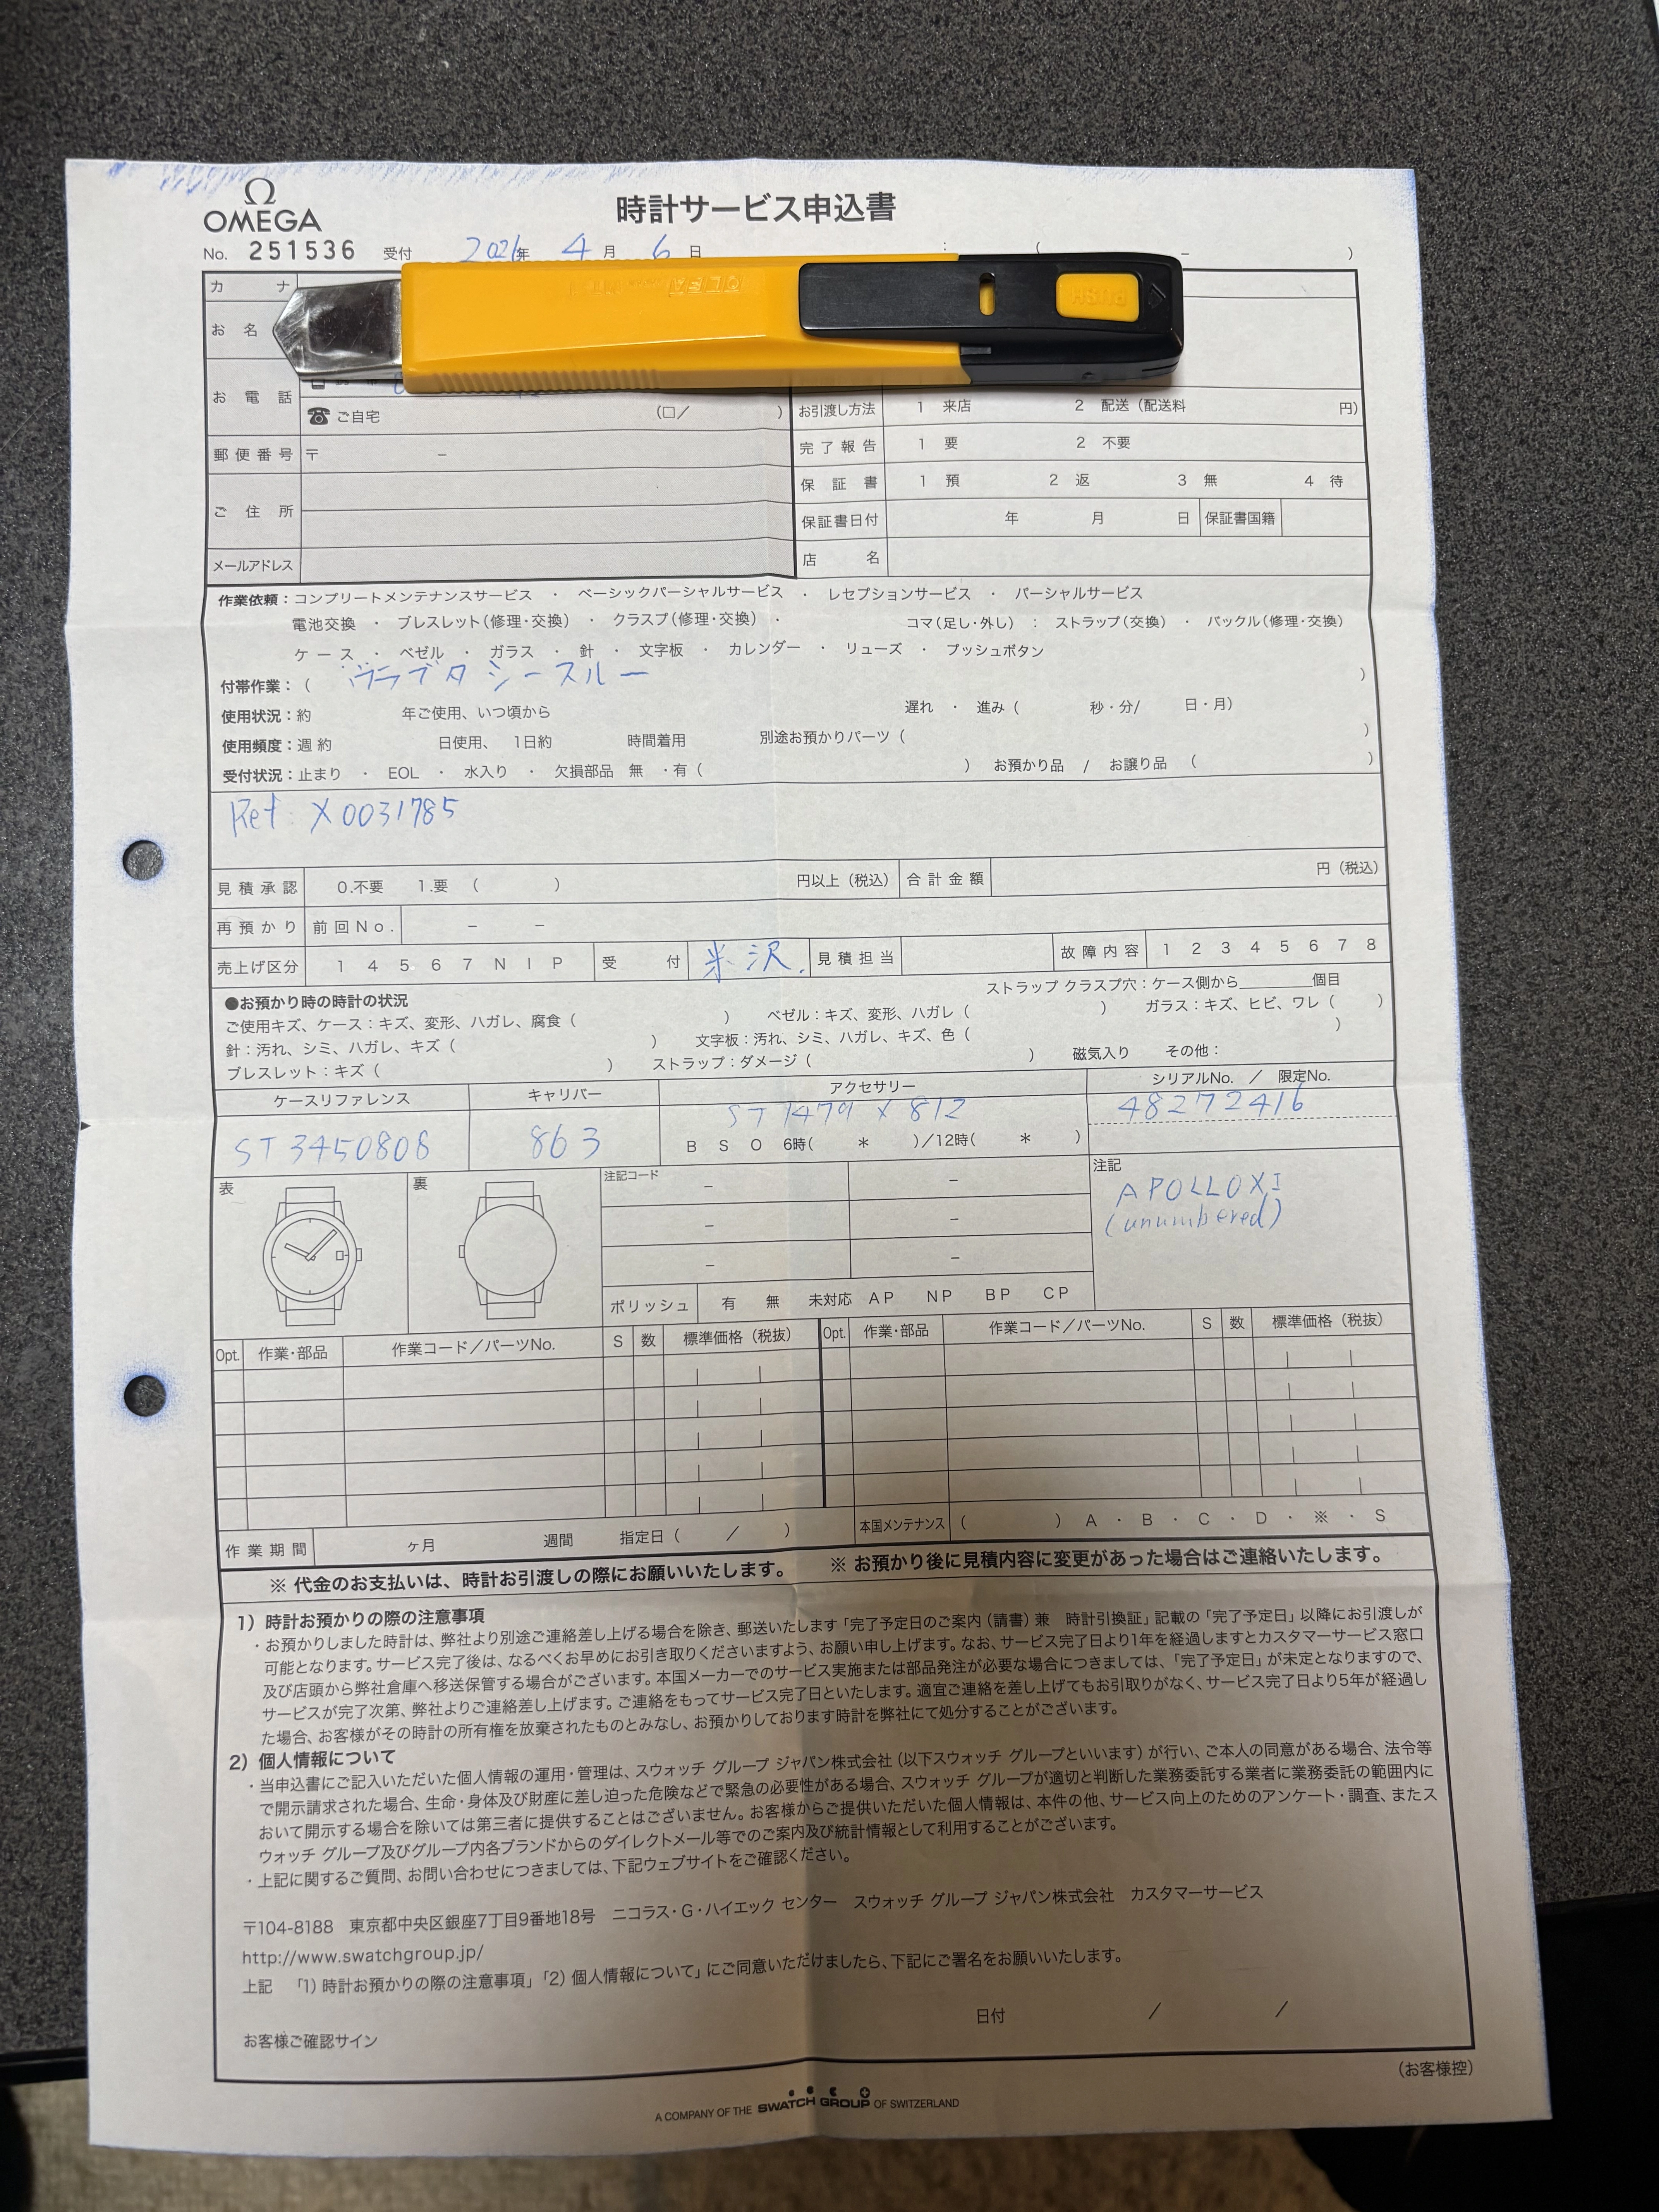 Ω
OMEGA
時計サービス申込書
No. 251536 受付 2021年 4月 6日 : ( – )
カナ
お名
お電話
☎ ご自宅 (□/ )
お引渡し方法 1 来店 2 配送(配送料 円)
郵便番号 〒 –
完了報告 1 要 2 不要
保証書 1 預 2 返 3 無 4 待
ご住所
保証書日付 年 月 日 保証書国籍
メールアドレス
店名
作業依頼:コンプリートメンテナンスサービス ・ ベーシックパーシャルサービス ・ レセプションサービス ・ パーシャルサービス
電池交換 ・ ブレスレット(修理・交換) ・ クラスプ(修理・交換) ・ コマ(足し・外し) : ストラップ(交換) ・ バックル(修理・交換)
ケース ・ ベゼル ・ ガラス ・ 針 ・ 文字板 ・ カレンダー ・ リューズ ・ プッシュボタン
付帯作業:( ウラブタ シースルー )
使用状況:約 年ご使用、いつ頃から 遅れ ・ 進み( 秒・分/ 日・月)
使用頻度:週 約 日使用、 1日約 時間着用 別途お預かりパーツ( )
受付状況:止まり ・ EOL ・ 水入り ・ 欠損部品 無 ・有( ) お預かり品 / お譲り品 ( )
Ref: X0031785
見積承認 0.不要 1.要 ( ) 円以上(税込) 合計金額 円(税込)
再預かり 前回No. – –
売上げ区分 1 4 5 6 7 N I P 受付 米沢. 見積担当 故障内容 1 2 3 4 5 6 7 8
●お預かり時の時計の状況 ストラップ クラスプ穴:ケース側から________個目
ご使用キズ、ケース:キズ、変形、ハガレ、腐食( ) ベゼル:キズ、変形、ハガレ( ) ガラス:キズ、ヒビ、ワレ( )
針:汚れ、シミ、ハガレ、キズ( ) 文字板:汚れ、シミ、ハガレ、キズ、色( )
ブレスレット:キズ( ) ストラップ:ダメージ( ) 磁気入り その他:
ケースリファレンス キャリバー アクセサリー シリアルNo. / 限定No.
ST3450808 863 ST 1479 X 812 48272416
B S O 6時( * )/12時( * )
表 裏 注記コード 注記
APOLLO XI
(unumbered)
ポリッシュ 有 無 未対応 AP NP BP CP
Opt. 作業・部品 作業コード/パーツNo. S 数 標準価格(税抜) Opt. 作業・部品 作業コード/パーツNo. S 数 標準価格(税抜)
作業期間 ヶ月 週間 指定日( / ) 本国メンテナンス ( ) A ・ B ・ C ・ D ・ ※ ・ S
※ 代金のお支払いは、時計お引渡しの際にお願いいたします。 ※ お預かり後に見積内容に変更があった場合はご連絡いたします。
1) 時計お預かりの際の注意事項
・お預かりしました時計は、弊社より別途ご連絡差し上げる場合を除き、郵送いたします「完了予定日のご案内(請書)兼 時計引換証」記載の「完了予定日」以降にお引渡しが
可能となります。サービス完了後は、なるべくお早めにお引き取りくださいますよう、お願い申し上げます。なお、サービス完了日より1年を経過しますとカスタマーサービス窓口
及び店頭から弊社倉庫へ移送保管する場合がございます。本国メーカーでのサービス実施または部品発注が必要な場合につきましては、「完了予定日」が未定となりますので、
サービスが完了次第、弊社よりご連絡差し上げます。ご連絡をもってサービス完了日といたします。適宜ご連絡を差し上げてもお引取りがなく、サービス完了日より5年が経過し
た場合、お客様がその時計の所有権を放棄されたものとみなし、お預かりしております時計を弊社にて処分することがございます。
2) 個人情報について
・当申込書にご記入いただいた個人情報の運用・管理は、スウォッチ グループ ジャパン株式会社(以下スウォッチ グループといいます)が行い、ご本人の同意がある場合、法令等
で開示請求された場合、生命・身体及び財産に差し迫った危険などで緊急の必要性がある場合、スウォッチ グループが適切と判断した業務委託する業者に業務委託の範囲内に
おいて開示する場合を除いては第三者に提供することはございません。お客様からご提供いただいた個人情報は、本件の他、サービス向上のためのアンケート・調査、またス
ウォッチ グループ及びグループ内各ブランドからのダイレクトメール等でのご案内及び統計情報として利用することがございます。
・上記に関するご質問、お問い合わせにつきましては、下記ウェブサイトをご確認ください。
〒104-8188 東京都中央区銀座7丁目9番地18号 ニコラス・G・ハイエック センター スウォッチ グループ ジャパン株式会社 カスタマーサービス
http://www.swatchgroup.jp/
上記 「1) 時計お預かりの際の注意事項」「2) 個人情報について」にご同意いただけましたら、下記にご署名をお願いいたします。
日付 / /
お客様ご確認サイン
(お客様控)
A COMPANY OF THE SWATCH GROUP OF SWITZERLAND
OLFA
PUSH